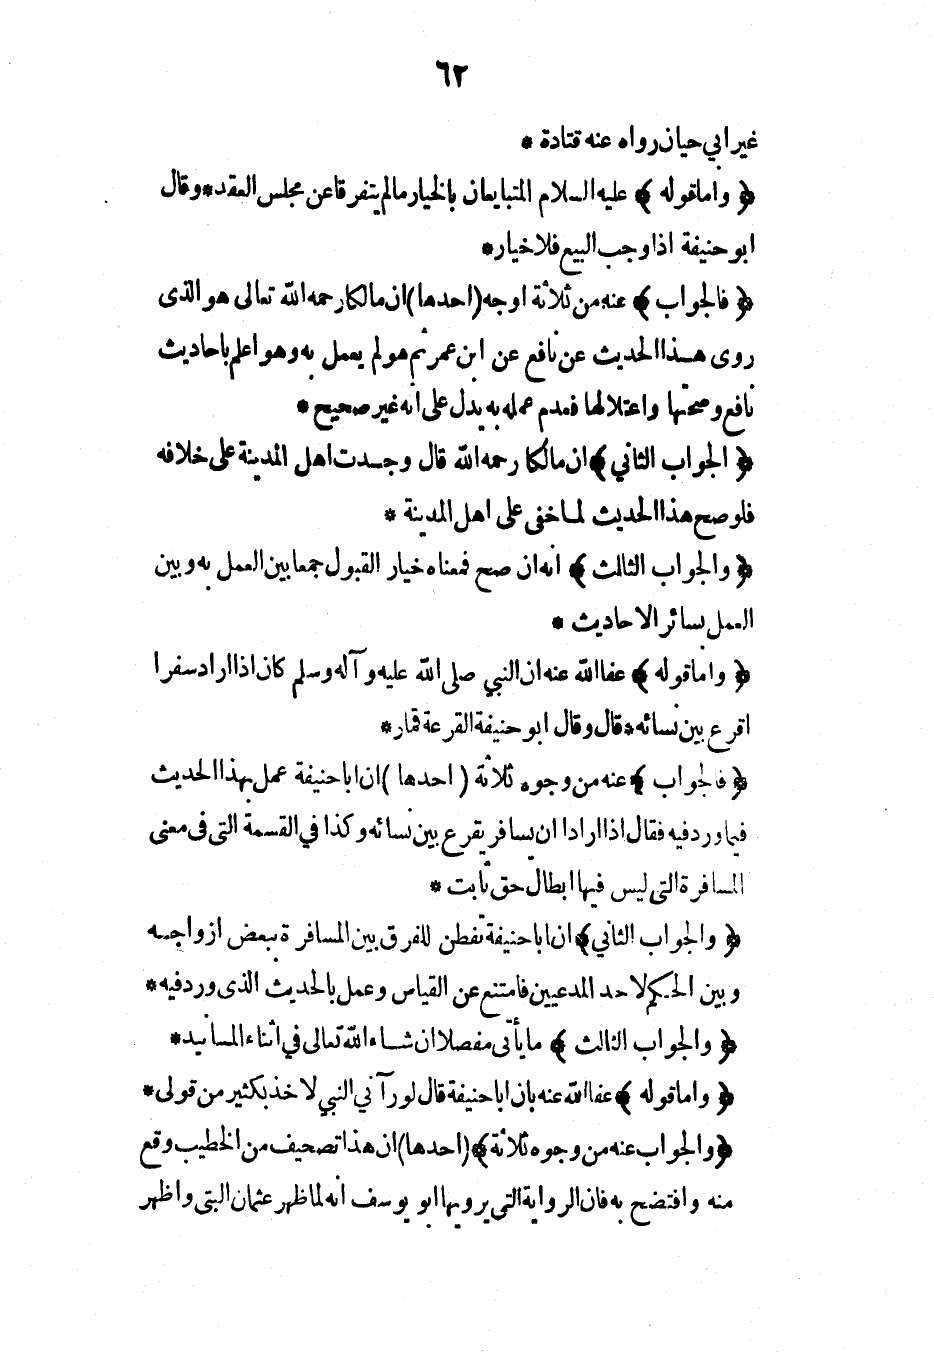 ٦٢
غير ابي حيان رواه عنه قتادة *
﴿ واما قوله ﴾ عليه السلام المتبايعان بالخيار مالم يتفرقا عن مجلس العقد * وقال
ابو حنيفة اذا وجب البيع فلا خيار *
﴿ فالجواب ﴾ عنه من ثلاثة اوجه (احدها) ان مالكا رحمه الله تعالى هو الذى
روى هذا الحديث عن نافع عن ابن عمر ثم هو لم يعمل به وهو اعلم باحاديث
نافع وصحتها واعتلالها فعدم عمله به يدل على انه غير صحيح *
﴿ الجواب الثاني ﴾ ان مالكا رحمه الله قال وجدت اهل المدينة على خلافه
فلو صح هذا الحديث لما خفى على اهل المدينة *
﴿ والجواب الثالث ﴾ انه ان صح فمعناه خيار القبول جمعا بين العمل به وبين
العمل بسائر الاحاديث *
﴿ واما قوله ﴾ عفا الله عنه ان النبي صلى الله عليه وآله وسلم كان اذا اراد سفرا
اقرع بين نسائه * قال وقال ابو حنيفة القرعة قمار *
﴿ فالجواب ﴾ عنه من وجوه ثلاثة ( احدها ) ان ابا حنيفة عمل بهذا الحديث
فيما ورد فيه فقال اذا ارادا ان يسافر يقرع بين نسائه وكذا في القسمة التى فى معنى
المسافرة التى ليس فيها ابطال حق ثابت *
﴿ والجواب الثاني ﴾ ان ابا حنيفة تفطن للفرق بين المسافرة ببعض ازواجه
وبين الحكم لاحد المدعيين فامتنع عن القياس وعمل بالحديث الذى ورد فيه *
﴿ والجواب الثالث ﴾ ما يأتى مفصلا ان شاء الله تعالى في اثناء المسانيد *
﴿ واما قوله ﴾ عفا الله عنه بان ابا حنيفة قال لو رآني النبي لاخذ بكثير من قولى *
﴿ والجواب عنه من وجوه ثلاثة ﴾ (احدها) ان هذا تصحيف من الخطيب وقع
منه وافتضح به فان الرواية التى يرويها ابو يوسف انه لما ظهر عثمان البتى واظهر